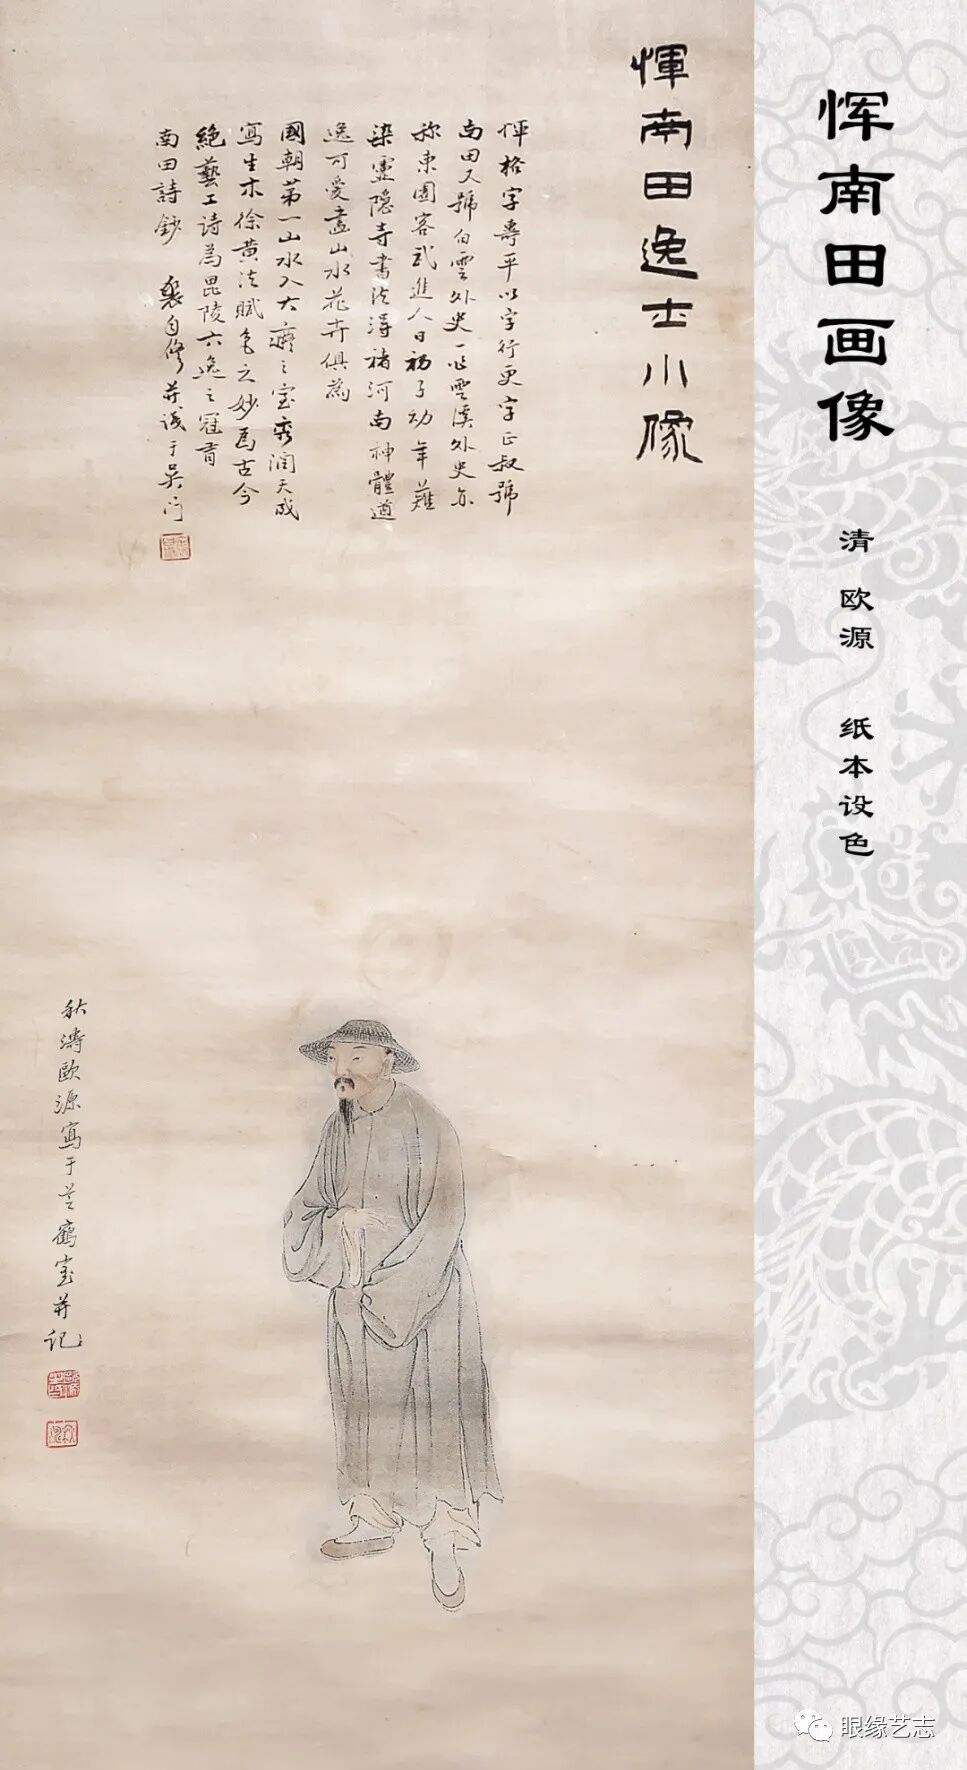 恽南田画像
清 欧源 纸本设色
惲南田逸士小像
惲格字壽平以字行更字正叔號
南田又號白雲外史一作雲溪外史亦
称東園客武進人日初子幼年薙
染靈隐寺書法得褚河南神體遒
逸可愛畫山水花卉俱為
國朝第一山水入大癡之室秀潤天成
寫生本徐黄法賦色之妙為古今
絕藝工诗為毘陵六逸之冠有
南田詩鈔
自修并识于吴门
秋濤歐源寫于
鶴室并记
眼缘艺志